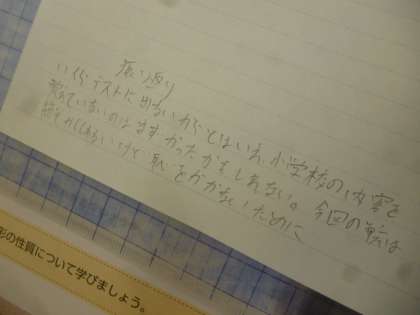 振り返り
いくらテストに出ないからとはいえ、小学校の内容を
覚えていないのはまずかったかもしれない。今回の
いけど恥をかかないために
形の性質について学びましょう。